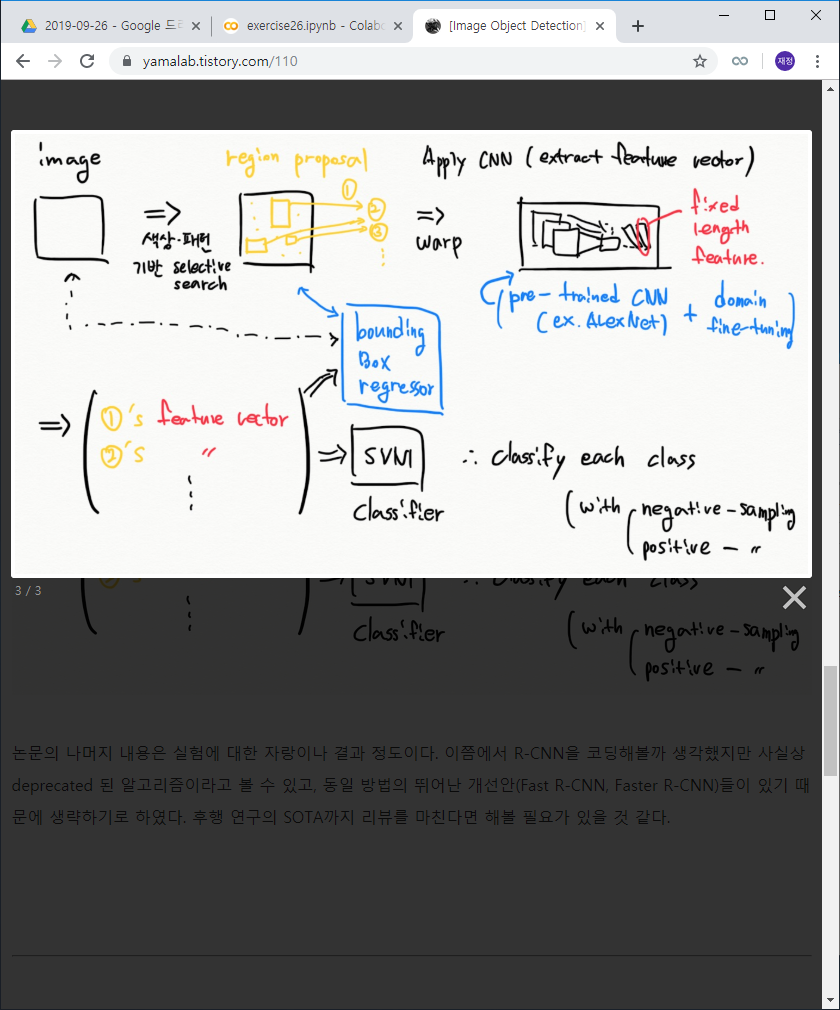 2019-09-26 - Google 드라
exercise26.ipynb - Colabo
[Image Object Detection]
yamalab.tistory.com/110
재정
image
region proposal
Apply CNN (extract feature vector)
①
②
③
⇒
색상·패턴
기반 selective
search
⇒
warp
fixed
length
feature.
(pre-trained CNN + domain
(ex. AlexNet) fine-tuning)
bounding
Box
regressor
⇒ ①'s feature vector
②'s 〃
⇒ SVM
classifier
∴ classify each class
(with negative-sampling
positive - 〃
3 / 3
SVM
∴ classify each class
classifier
(with negative-sampling
positive - 〃
논문의 나머지 내용은 실험에 대한 자랑이나 결과 정도이다. 이쯤에서 R-CNN을 코딩해볼까 생각했지만 사실상
deprecated 된 알고리즘이라고 볼 수 있고, 동일 방법의 뛰어난 개선안(Fast R-CNN, Faster R-CNN)들이 있기 때
문에 생략하기로 하였다. 후행 연구의 SOTA까지 리뷰를 마친다면 해볼 필요가 있을 것 같다.